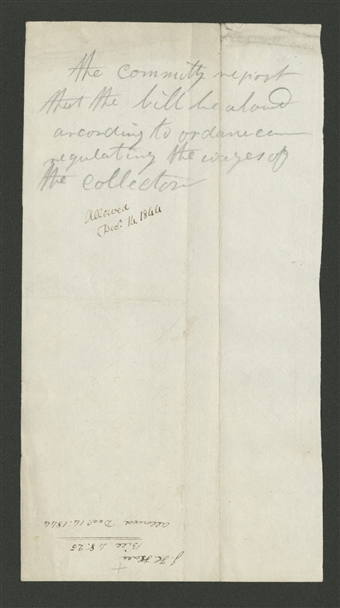 the committy report
that the bill be aloud
arcording to ordanicen
regulating the wages of
the collector
Allowed
Decr 14 1844
J. H. Hale
Bill $8.25
allowed Decr 14. 1844